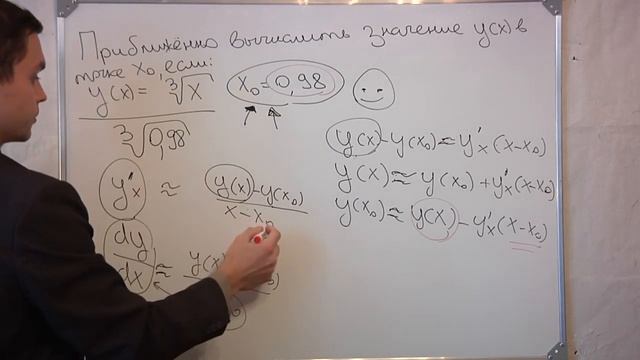 Приближённо вычислить значение y(x) в
точке x₀, если:
y(x) = ∛x
x₀ = 0,98
∛0,98
y'ₓ ≈ (y(x) - y(x₀)) / (x - x₀)
dy/dx ≈ y(x
y(x) - y(x₀) ≈ y'ₓ (x - x₀)
y(x) ≈ y(x₀) + y'ₓ (x - x₀)
y(x₀) ≈ y(x) - y'ₓ (x - x₀)